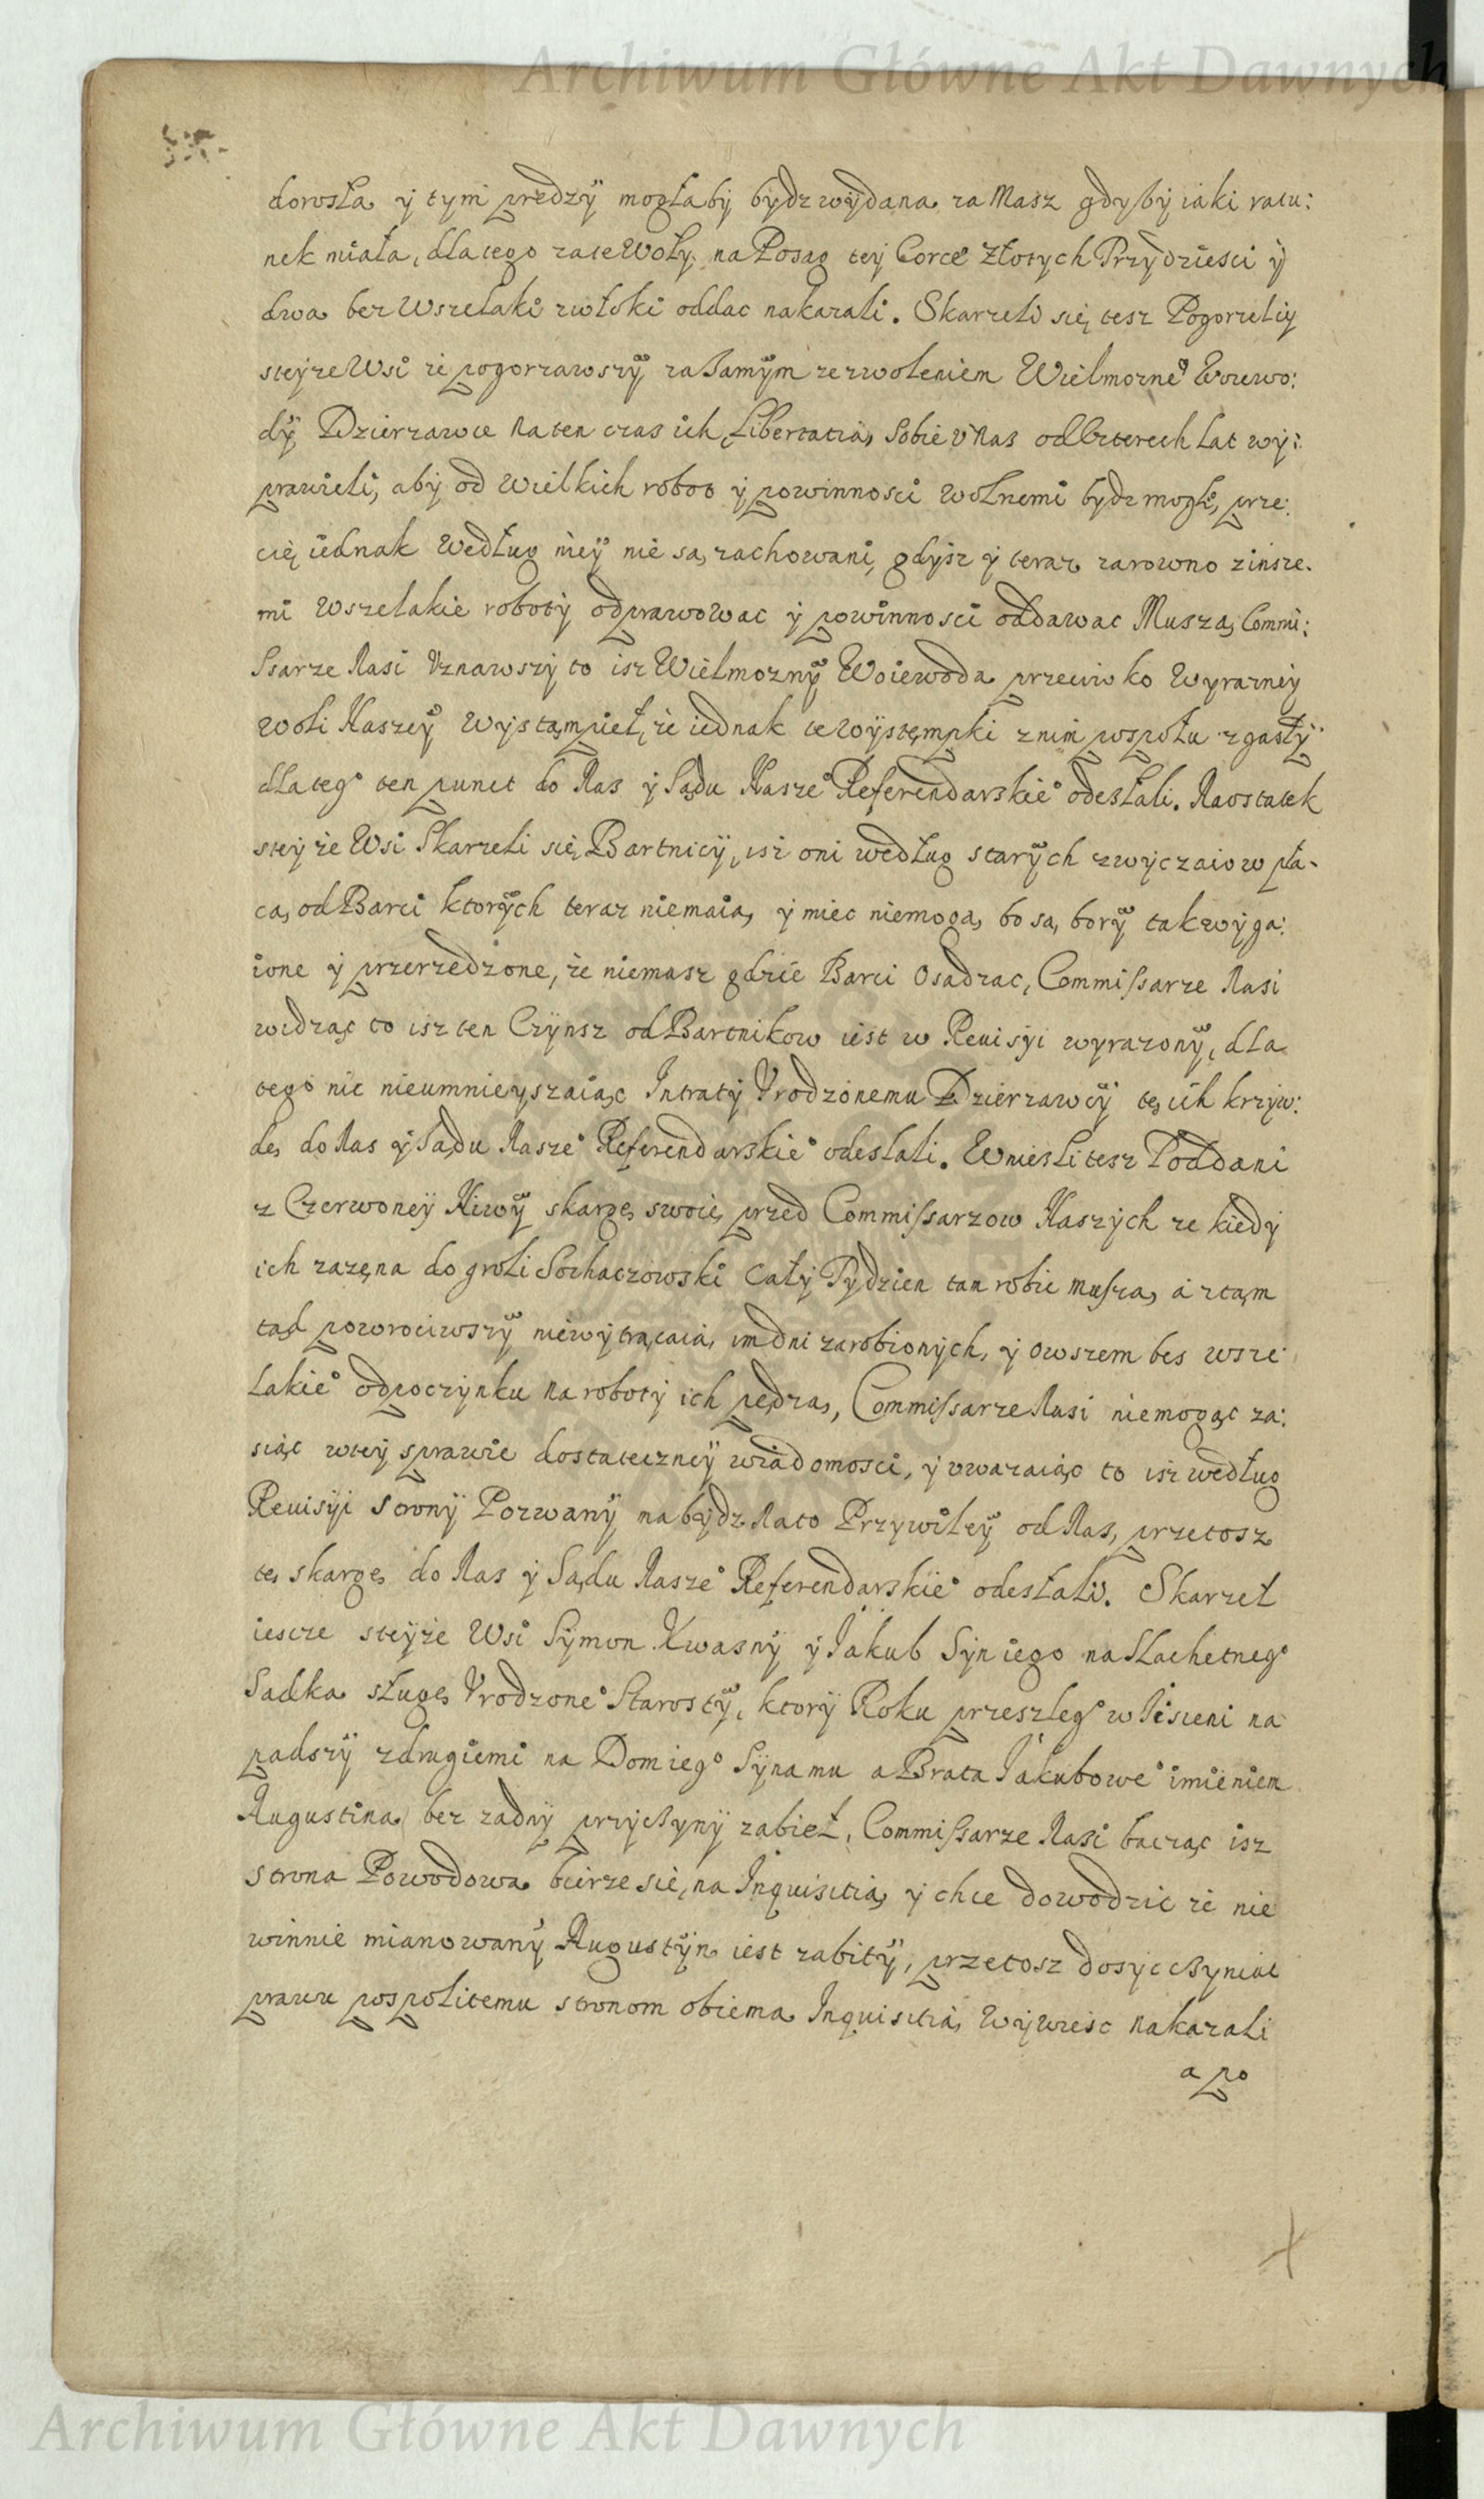 Archiwum Główne Akt Dawnych
dorosła y tym prędzÿ mogłaby bydz wÿdana za Masz gdyby iaki ratu:
nek miała, dla tego za te Woły na Posag teÿ Corce Złotych Trzydziesci ÿ
dwa bez Wszelaki zwłoki oddac nakazali. Skarzeli się tesz Pogorzelcy
steÿze Wsi ze pogorzawszÿ za Samÿm zezwoleniem Wielmozneº Woiewo:
dÿ Dzierzawce na ten czas ich Libertatią Sobie v Nas od Czterech Lat wy:
prawieli, aby od wielkich robot y powinnosci wolnemi bydz mogli, prze:
cię iednak według nieÿ nie są zachowani, gdysz y teraz zarowno zinsze.
mi wszelakie roboty odprawowac y powinnosci oddawac Muszą, Commi:
ssarze Nasi Vznawszy to isz Wielmoznÿ Woiewoda przeciwko wyrazney
woli Naszeÿ wystąmpieł, ze iednak te wÿstęmpki z nim pospołu zgasłÿ
dla tegº ten punct do Nas y Sądu Naszeº Referendarskieº odesłali. Naostatek
steÿze Wsi Skarzeli się Bartnicÿ, isz oni według starÿch zwyczaiow pła-
cą od Barci ktorÿch teraz niemaią y miec niemogą, bo są borÿ tak wyga:
ione y przerzedzone, ze niemasz gdzie Barci Osadzac, Commissarze Nasi
widząc to isz ten Czÿnsz od Bartnikow iest w Reuisÿi wyrazonÿ, dla
tego nic nieumnieyszaiąc Intraty Vrodzonemu Dzierzawcÿ tę ich krzyw:
dę do Nas y Sądu Naszeº Referendarskieº odeslali. Wniesli tesz Poddani
z Czerwoneÿ Niwÿ skargę swoię przed Commissarzow Naszych ze kiedy
ich zazęna do groli Sochaczowski Cały Tydzien tan robic muszą, a ztąm
tąd powrociwszÿ niewytrącaią im dni zarobionych, y owszem bes wsze
lakieº odpoczynku na roboty ich pędzą, Commissarze Nasi niemogąc za:
siąc wtey sprawie dostateczneÿ wiadomosci, y vwazaiąc to isz według
Reuisÿi Stronÿ Pozwanÿ nabędz Na to Przywileÿ od Nas, przetosz
tę skargę do Nas y Sądu Naszeº Referendarskieº odesłali. Skarzeł
iescze steÿze Wsi Sÿmon Kwasnÿ y Iakub Syn iego na Slachetnegº
Sadka sługę Vrodzoneº Starostÿ, ktorÿ Roku przeszlegº w Iesieni na
padszÿ zdrugiemi na Dom iegº Sÿna mu a Brata Iakuboweº imieniem
Augustina bez zadnÿ przyczynÿ zabieł, Commissarze Nasi bacząc isz
strona Powodowa bierze się na Inquisitią y chce dowodzic ze nie
winnie mianowanÿ Augustÿn iest zabitÿ, przetosz dosyc czyniac
prawu pospolitemu stronom obiema Inquisitią wywiesc nakazali
a po
Archiwum Główne Akt Dawnych